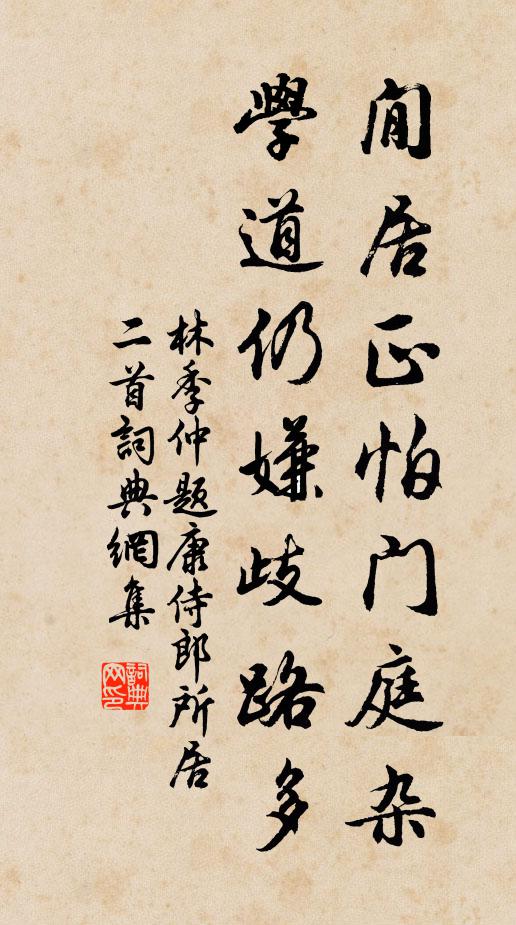 閒居正怕門庭杂
學道仍嫌歧路多
林季仲题康侍郎所居
二首詞典網集
詞典网印